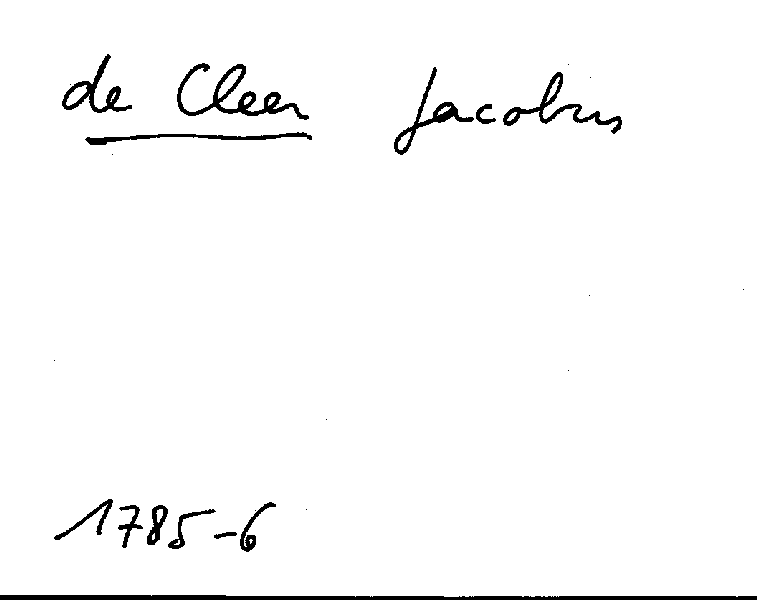 de Cleer Jacobus
1785-6